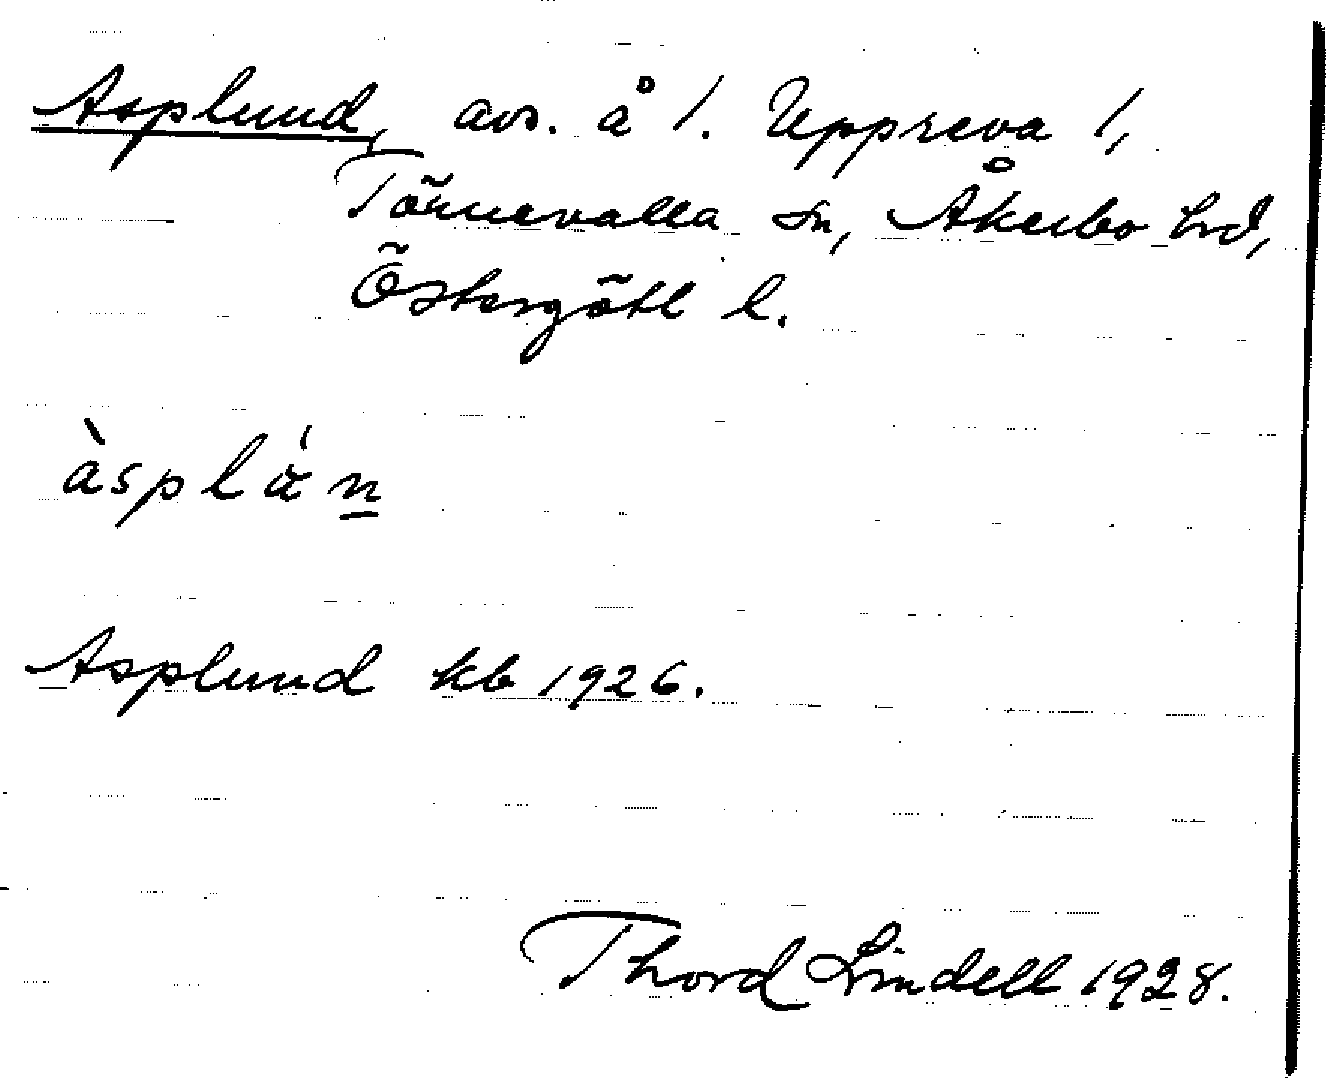 Asplund, avs. å 1. Uppreva 1,
Törnevalla sn, Åkerbo hd,
Östergötl l.
àsplá̈n̲
Asplund kb 1926.
Thord Lindell 1928.